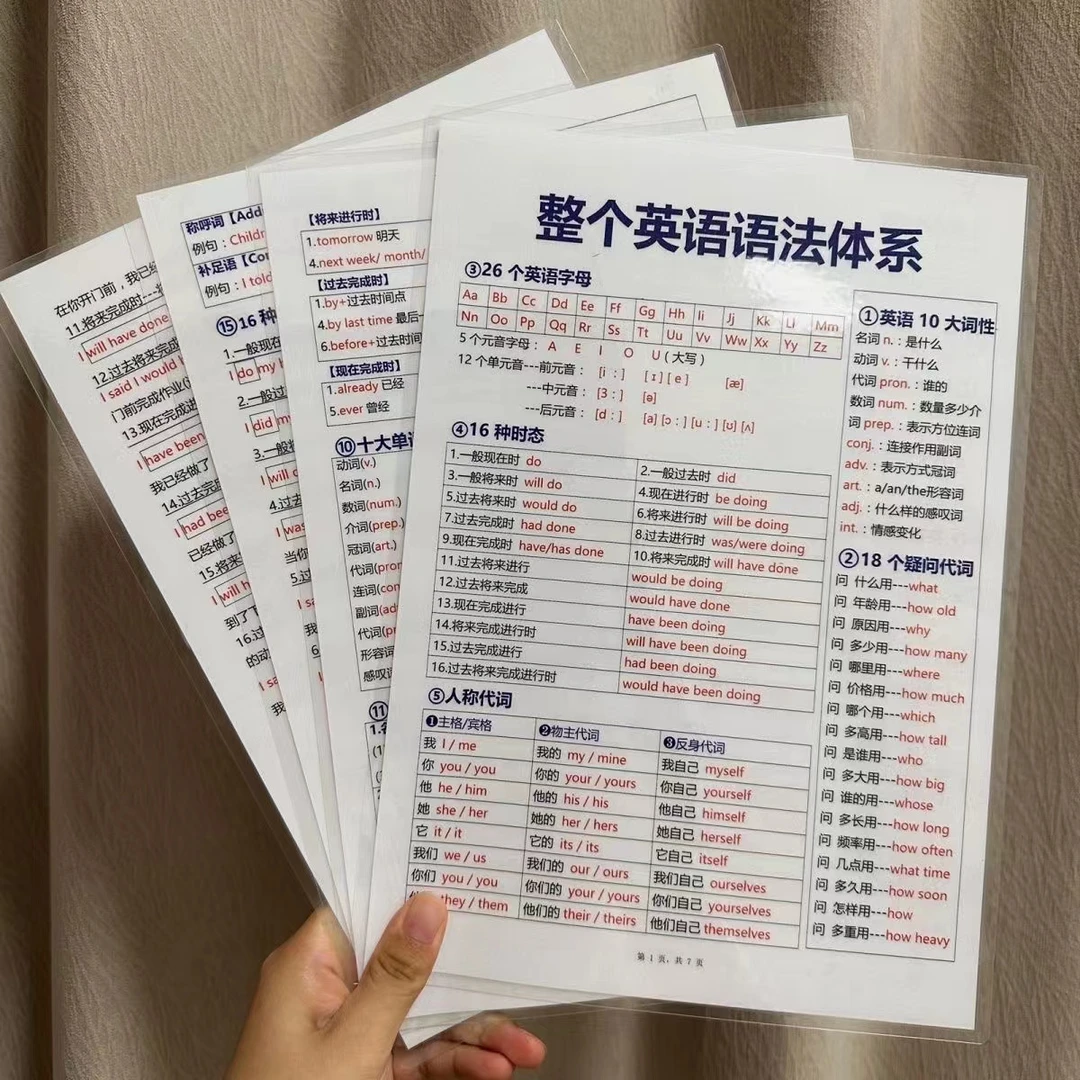 整个英语语法体系
③26 个英语字母
Aa Bb Cc Dd Ee Ff Gg Hh Ii Jj Kk Ll Mm
Nn Oo Pp Qq Rr Ss Tt Uu Vv Ww Xx Yy Zz
5 个元音字母: A E I O U (大写)
12 个单元音---前元音: [i:] [ɪ] [e] [æ]
---中元音: [3:] [ə]
---后元音: [d:] [a] [ɔ:] [u:] [ʊ] [ʌ]
④16 种时态
1.一般现在时 do
2.一般过去时 did
3.一般将来时 will do
4.现在进行时 be doing
5.过去将来时 would do
6.将来进行时 will be doing
7.过去完成时 had done
8.过去进行时 was/were doing
9.现在完成时 have/has done
10.将来完成时 will have done
11.过去将来进行 would be doing
12.过去将来完成 would have done
13.现在完成进行 have been doing
14.将来完成进行时 will have been doing
15.过去完成进行 had been doing
16.过去将来完成进行时 would have been doing
⑤人称代词
❶主格/宾格 ❷物主代词 ❸反身代词
我 I / me 我的 my / mine 我自己 myself
你 you / you 你的 your / yours 你自己 yourself
他 he / him 他的 his / his 他自己 himself
她 she / her 她的 her / hers 她自己 herself
它 it / it 它的 its / its 它自己 itself
我们 we / us 我们的 our / ours 我们自己 ourselves
你们 you / you 你们的 your / yours 你们自己 yourselves
they / them 他们的 their / theirs 他们自己 themselves
①英语 10 大词性
名词 n.:是什么
动词 v.:干什么
代词 pron.:谁的
数词 num.:数量多少介
词 prep.:表示方位连词
conj.:连接作用副词
adv.:表示方式冠词
art.:a/an/the形容词
adj.:什么样的感叹词
int.:情感变化
②18 个疑问代词
问 什么用---what
问 年龄用---how old
问 原因用---why
问 多少用---how many
问 哪里用---where
问 价格用---how much
问 哪个用---which
问 多高用---how tall
问 是谁用---who
问 多大用---how big
问 谁的用---whose
问 多长用---how long
问 频率用---how often
问 几点用---what time
问 多久用---how soon
问 怎样用---how
问 多重用---how heavy
第 1 页, 共 7 页
【将来进行时】
1.tomorrow 明天
4.next week/ month/
【过去完成时】
1.by+过去时间点
4.by last time 最后
6.before+过去时间
【现在完成时】
1.already 已经
5.ever 曾经
⑩十大单
动词(v.)
名词(n.)
数词(num.)
介词(prep.)
冠词(art.)
代词(pron
连词(con
副词(ad
代词(pr
形容词
感叹词
⑪
称呼词【Add
例句:Childr
补足语【Con
例句:I told
⑮16 种
1.一般现在
I do my
2.一般过
I did m
3.一般将
I will
4.过去
I was
当你
5.过
I sa
在你开门前,我已经
11.将来完成时---将
I will have done
12.过去将来完成
I said I would
门前完成作业
13.现在完成进
I have been
我已经做了
14.过去完成
I had bee
已经做了
15.将来
I will h
到了下
16.过
的动
I sa
我